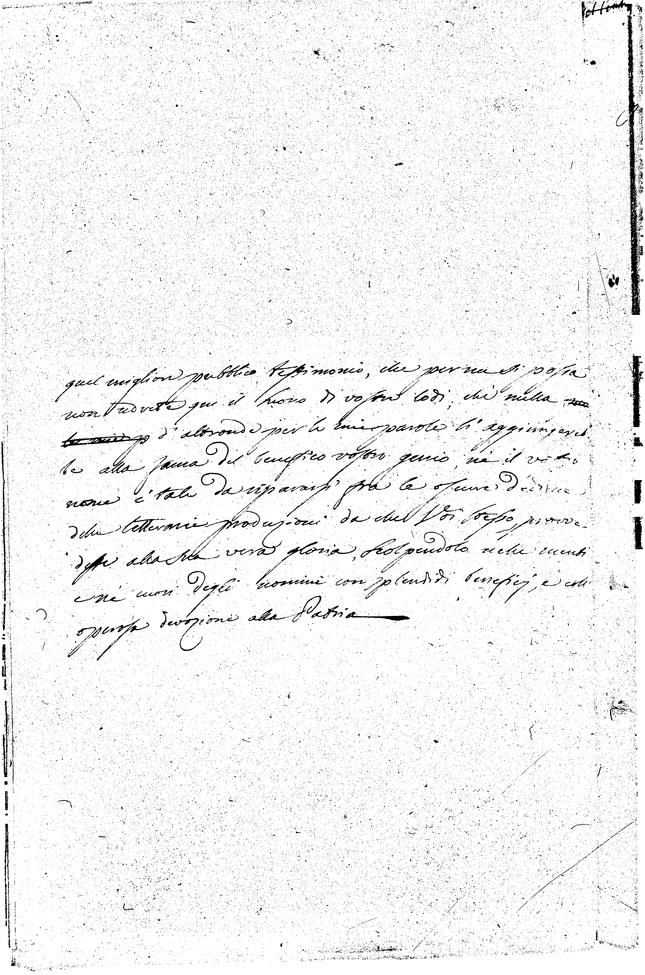 quel migliore pubblico testimonio, che per me si possa
non udrete qui il suono di vostre lodi, che nulla
d'altronde per le mie parole s'aggiungereb
be alla fama del benefico vostro genio, nè il vostro
nome è tale da ripararsi fra le oscure
delle letterarie produzioni da che Voi stesso provve
deste alla sua vera gloria, scolpendolo nelle menti
e nè cuori degli uomini con splendidi beneficj, e coll
operosa devozione alla Patria